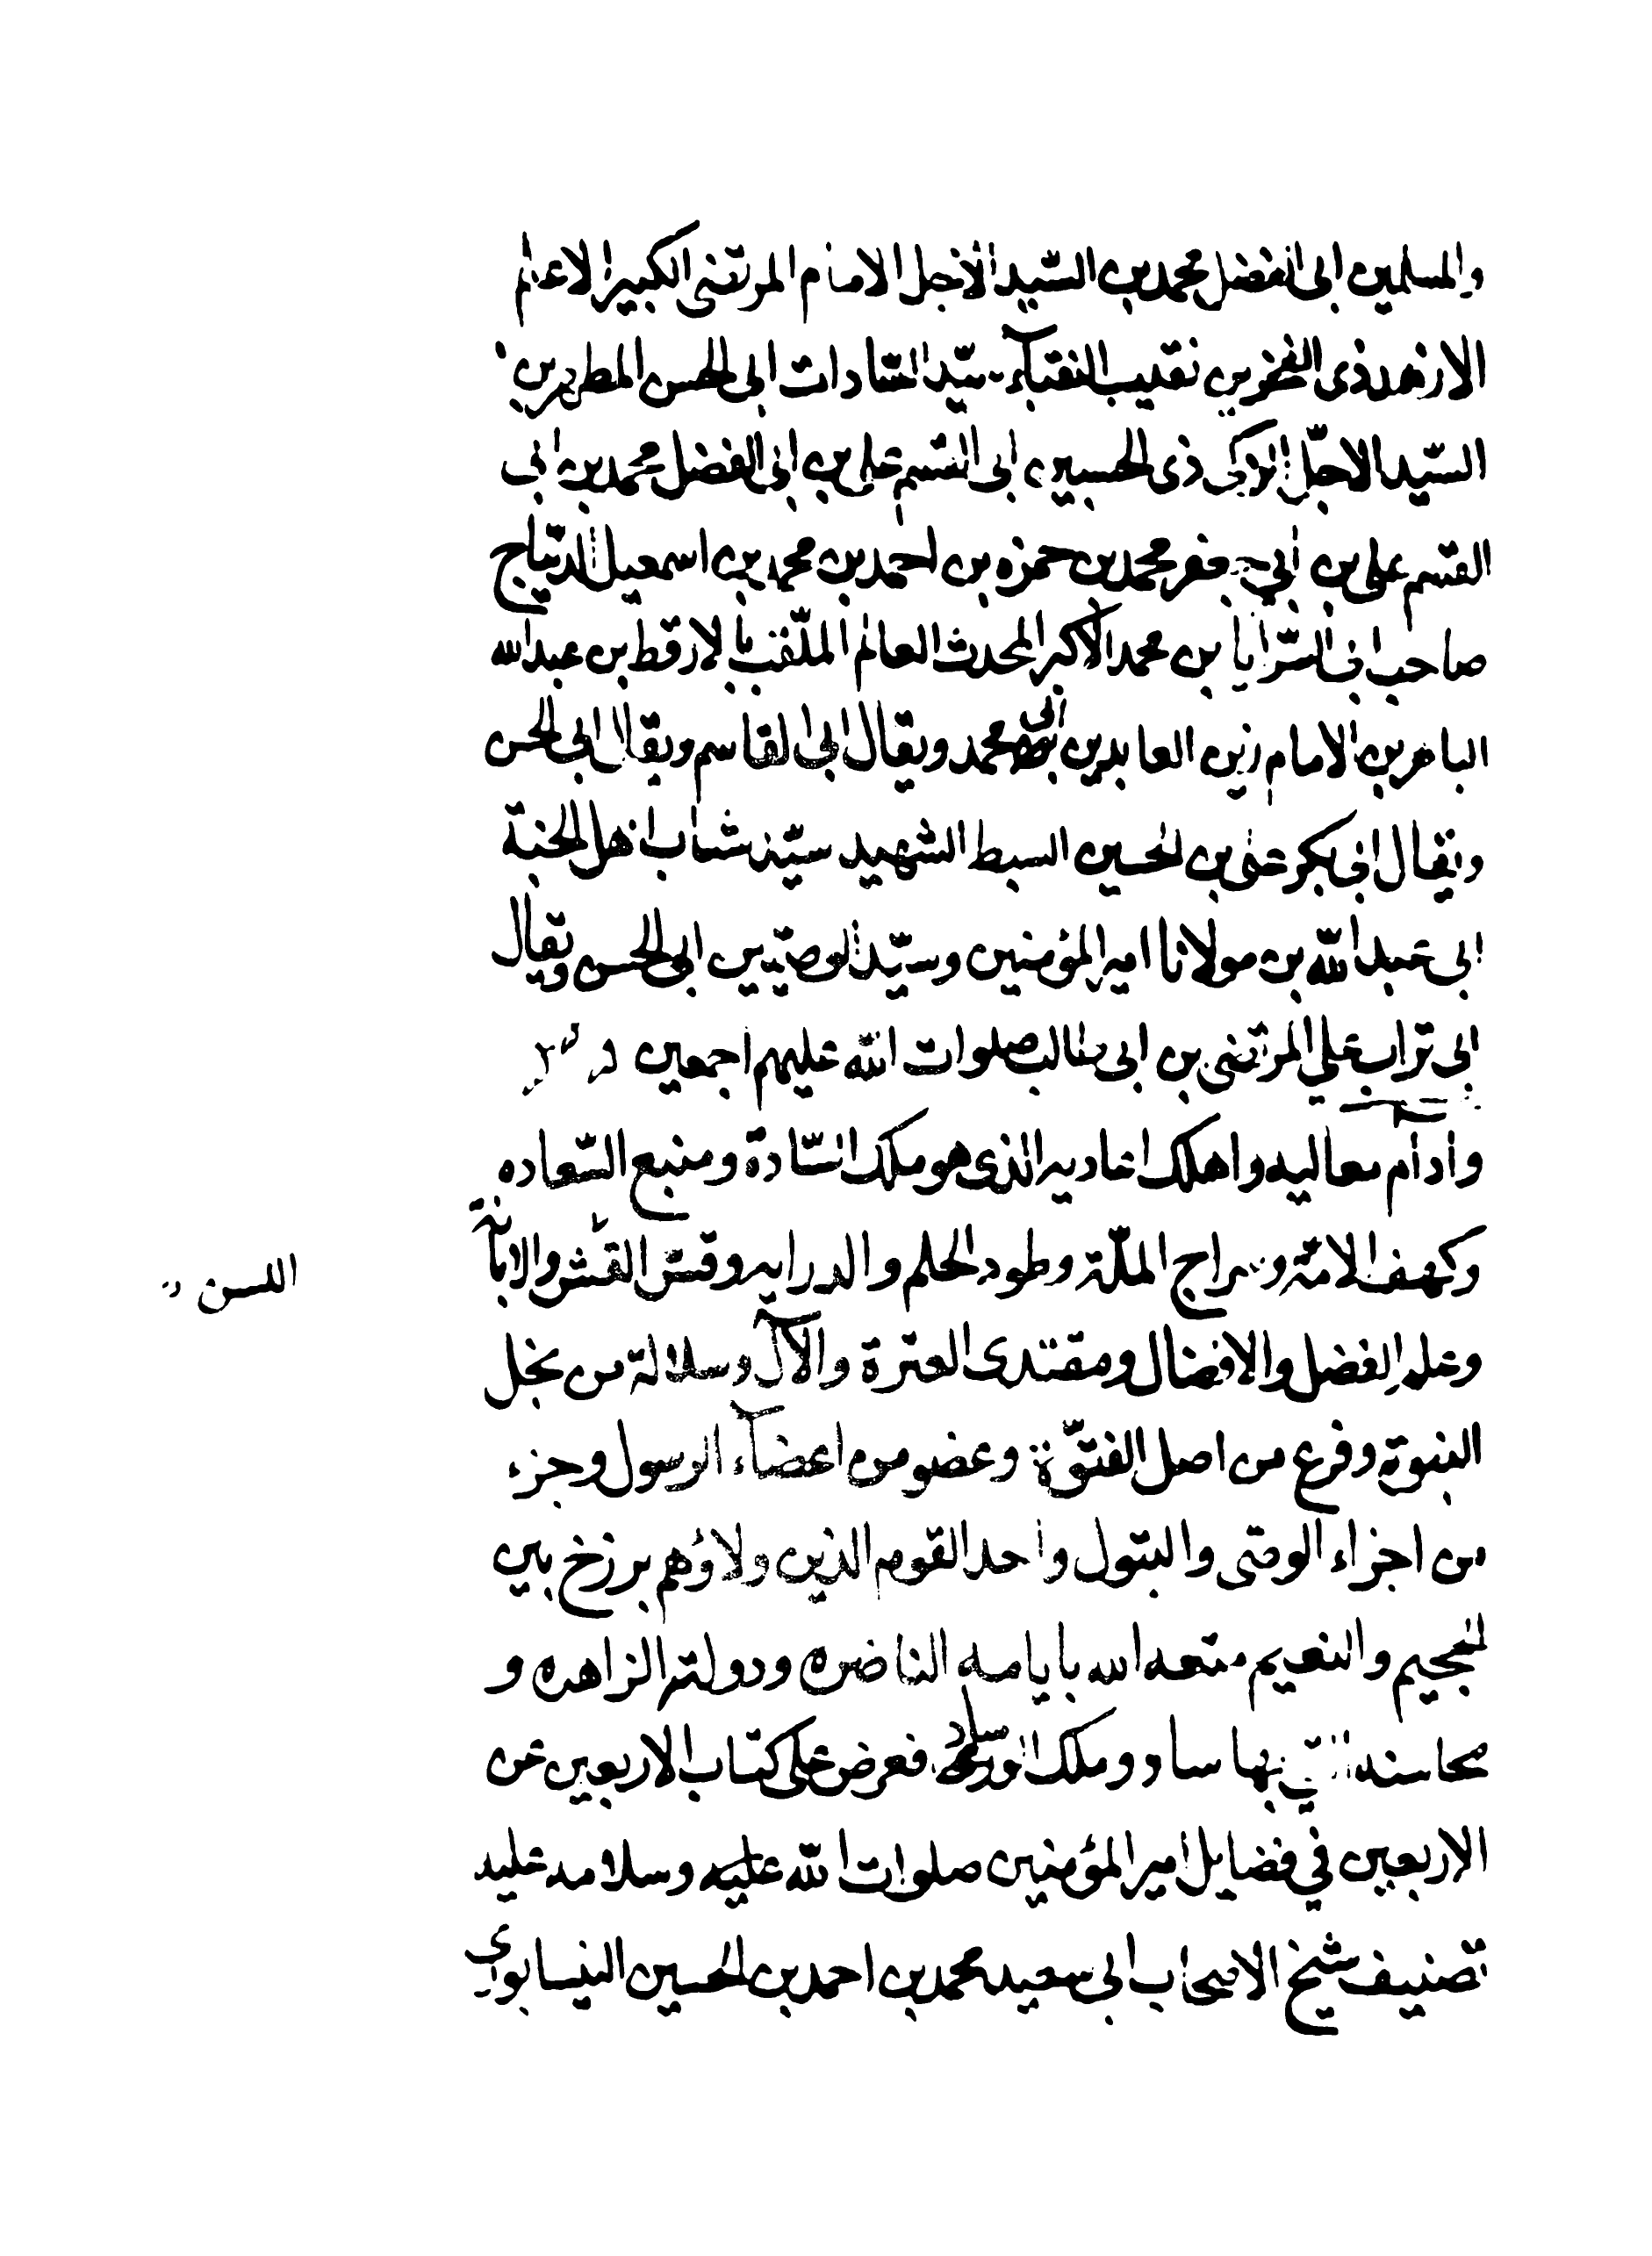 والمسلمين ابى الفضل محمد بن السّيد الاجل الامام المرتضى الكبير الاعلم
الازهد ذى الفخرين نقيب النقبآء سيّد السّادات ابى الحسن المطهر بن
السّيد الاجلّ الزكى ذى الحسبين ابى القسم على بن ابى الفضل محمد بن ابى
القسم على بن ابي جعفر محمد بن حمزه بن احمد بن محمد بن اسمعيل الديّباج
صاحب ابى السّرايا بن محمد الاكبر المحدث العالم الملّقب بالارقط بن عبد الله
الباهر بن الامام زين العابدين ابى محمد ويقال ابى القاسم ويقال ابى الحسن
ويقال ابى بكر على بن الحسين السبط الشهيد سيّد شباب اهل الجنة
ابى عبد الله بن مولانا امير المؤمنين وسيّد الوصيّين ابى الحسن ويقال
ابى تراب علي المرتضى بن ابى طالب صلوات الله عليهم اجمعين
وادآم معاليه واهلك اعاديه الذى هو ملك السّادة ومنبع السّعاده
وكهف الامّة وسراج الملّة وطود الحلم والدرايه وقسّ القسّ والابانة
اللسن
وعلم الفضل والافضال ومقتدى العترة والآل وسلالة من نجل
النبوة وفرع من اصل الفتوّة وعضو من اعضآء الرسول وجزء
من اجزاء الوصّى والبتول واحد القوم الذين ولاؤهم برزخ بين
الجحيم والنعيم متعه الله بايامه الناضره ودولته الزاهره و
محاسنه التي بها ساد وملك فعرض على كتاب الاربعين عن
الاربعين في فضايل امير المؤمنين صلوات الله عليه وسلامه عليه
تصنيف شيخ الاصحاب ابى سعيد محمد بن احمد بن الحسين النيسابورى